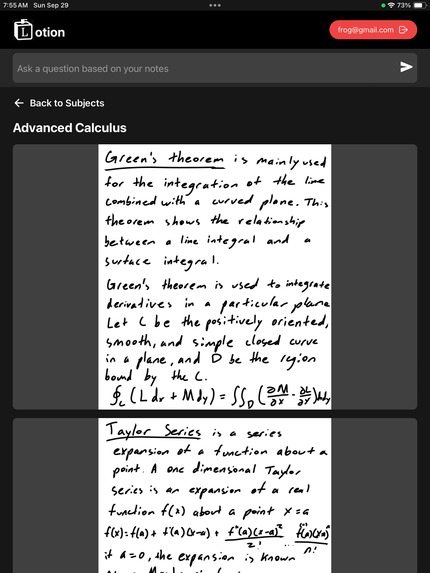 7:55 AM Sun Sep 29
73%
Lotion
frog@gmail.com
Ask a question based on your notes
← Back to Subjects
Advanced Calculus
Green's theorem is mainly used
for the integration of the line
combined with a curved plane. This
theorem shows the relationship
between a line integral and a
surface integral.
Green's theorem is used to integrate
derivatives in a particular plane
Let C be the positively oriented,
smooth, and simple closed curve
in a plane, and D be the region
bound by the C.
∮c (L dx + M dy) = ∬D (∂M/∂x - ∂L/∂y) dxdy
Taylor Series is a series
expansion of a function about a
point. A one dimensional Taylor
series is an expansion of a real
function f(x) about a point x=a
f(x)=f(a)+ f'(a)(x-a)+ f''(a)(x-a)²/2! ... fⁿ(a)(x-a)ⁿ/n!
if a=0, the expansion is known